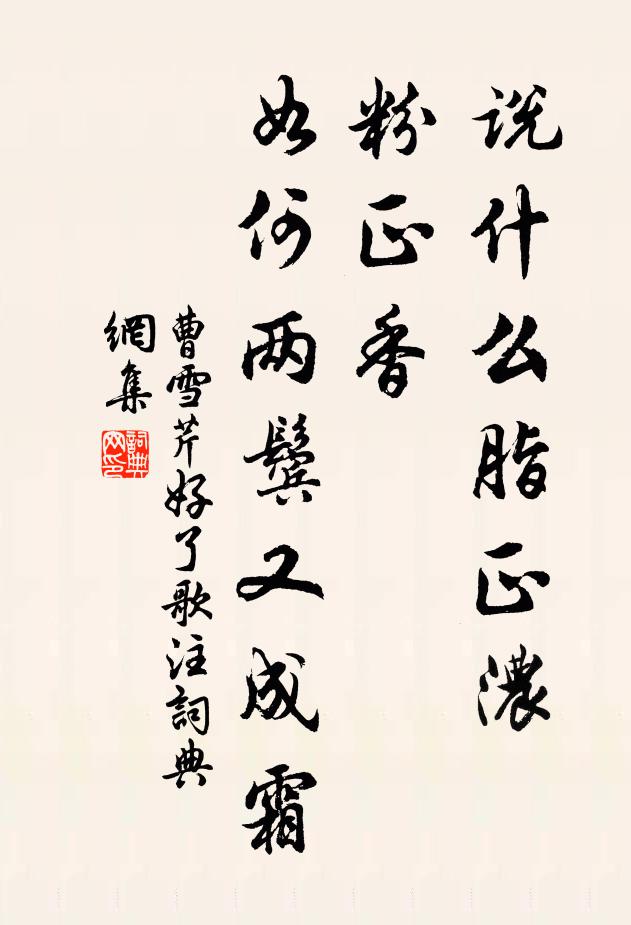 说什么脂正濃
粉正香
如何两鬓又成霜
曹雪芹好了歌注詞典
網集
詞典網印